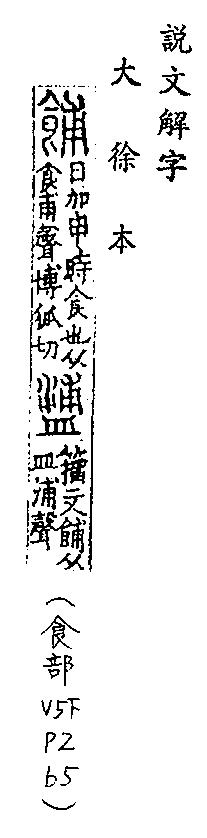 說文解字
大徐本
餔日加申時食也从
食甫聲博狐切𥂈籀文餔从
皿浦聲
（食部
V5F
P2
b5）